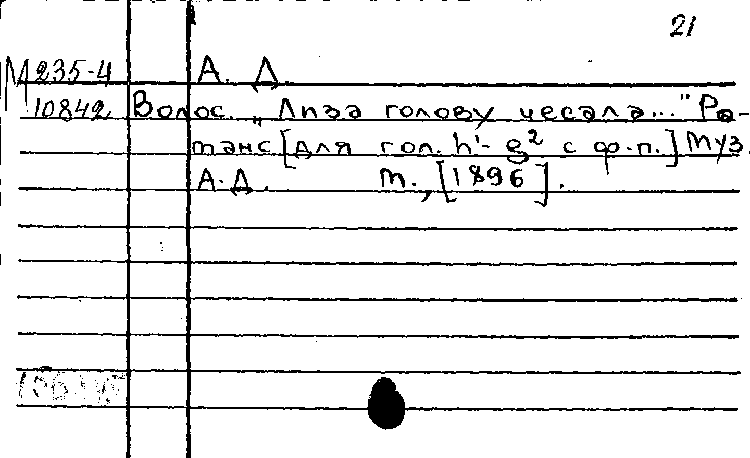 21
М 235-4 А. Д.
10842 Волос. „Лиза голову чесала..." Ро-
манс [для гол. h¹- g² с ф.п.] Муз.
А.Д. М., [1896].